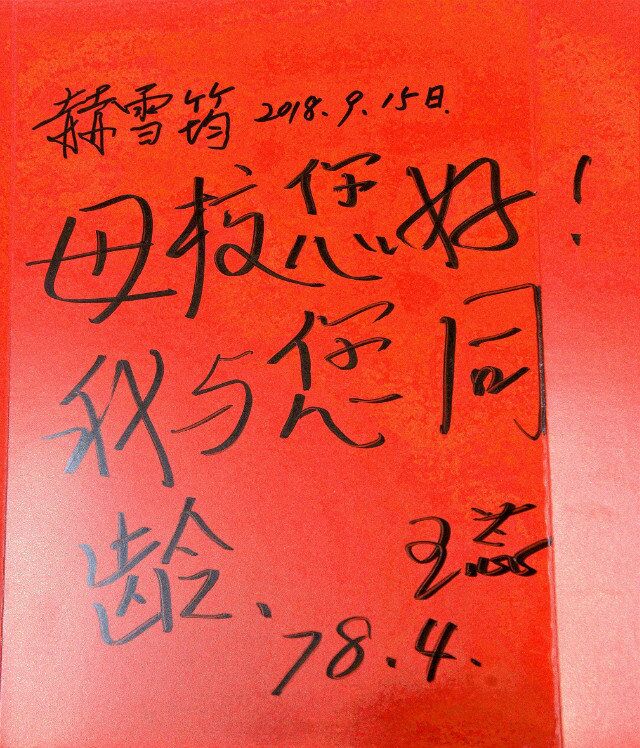 赫雪筠 2018.9.15日.
母校您好！
我与您同
龄、
王蕊
78.4.